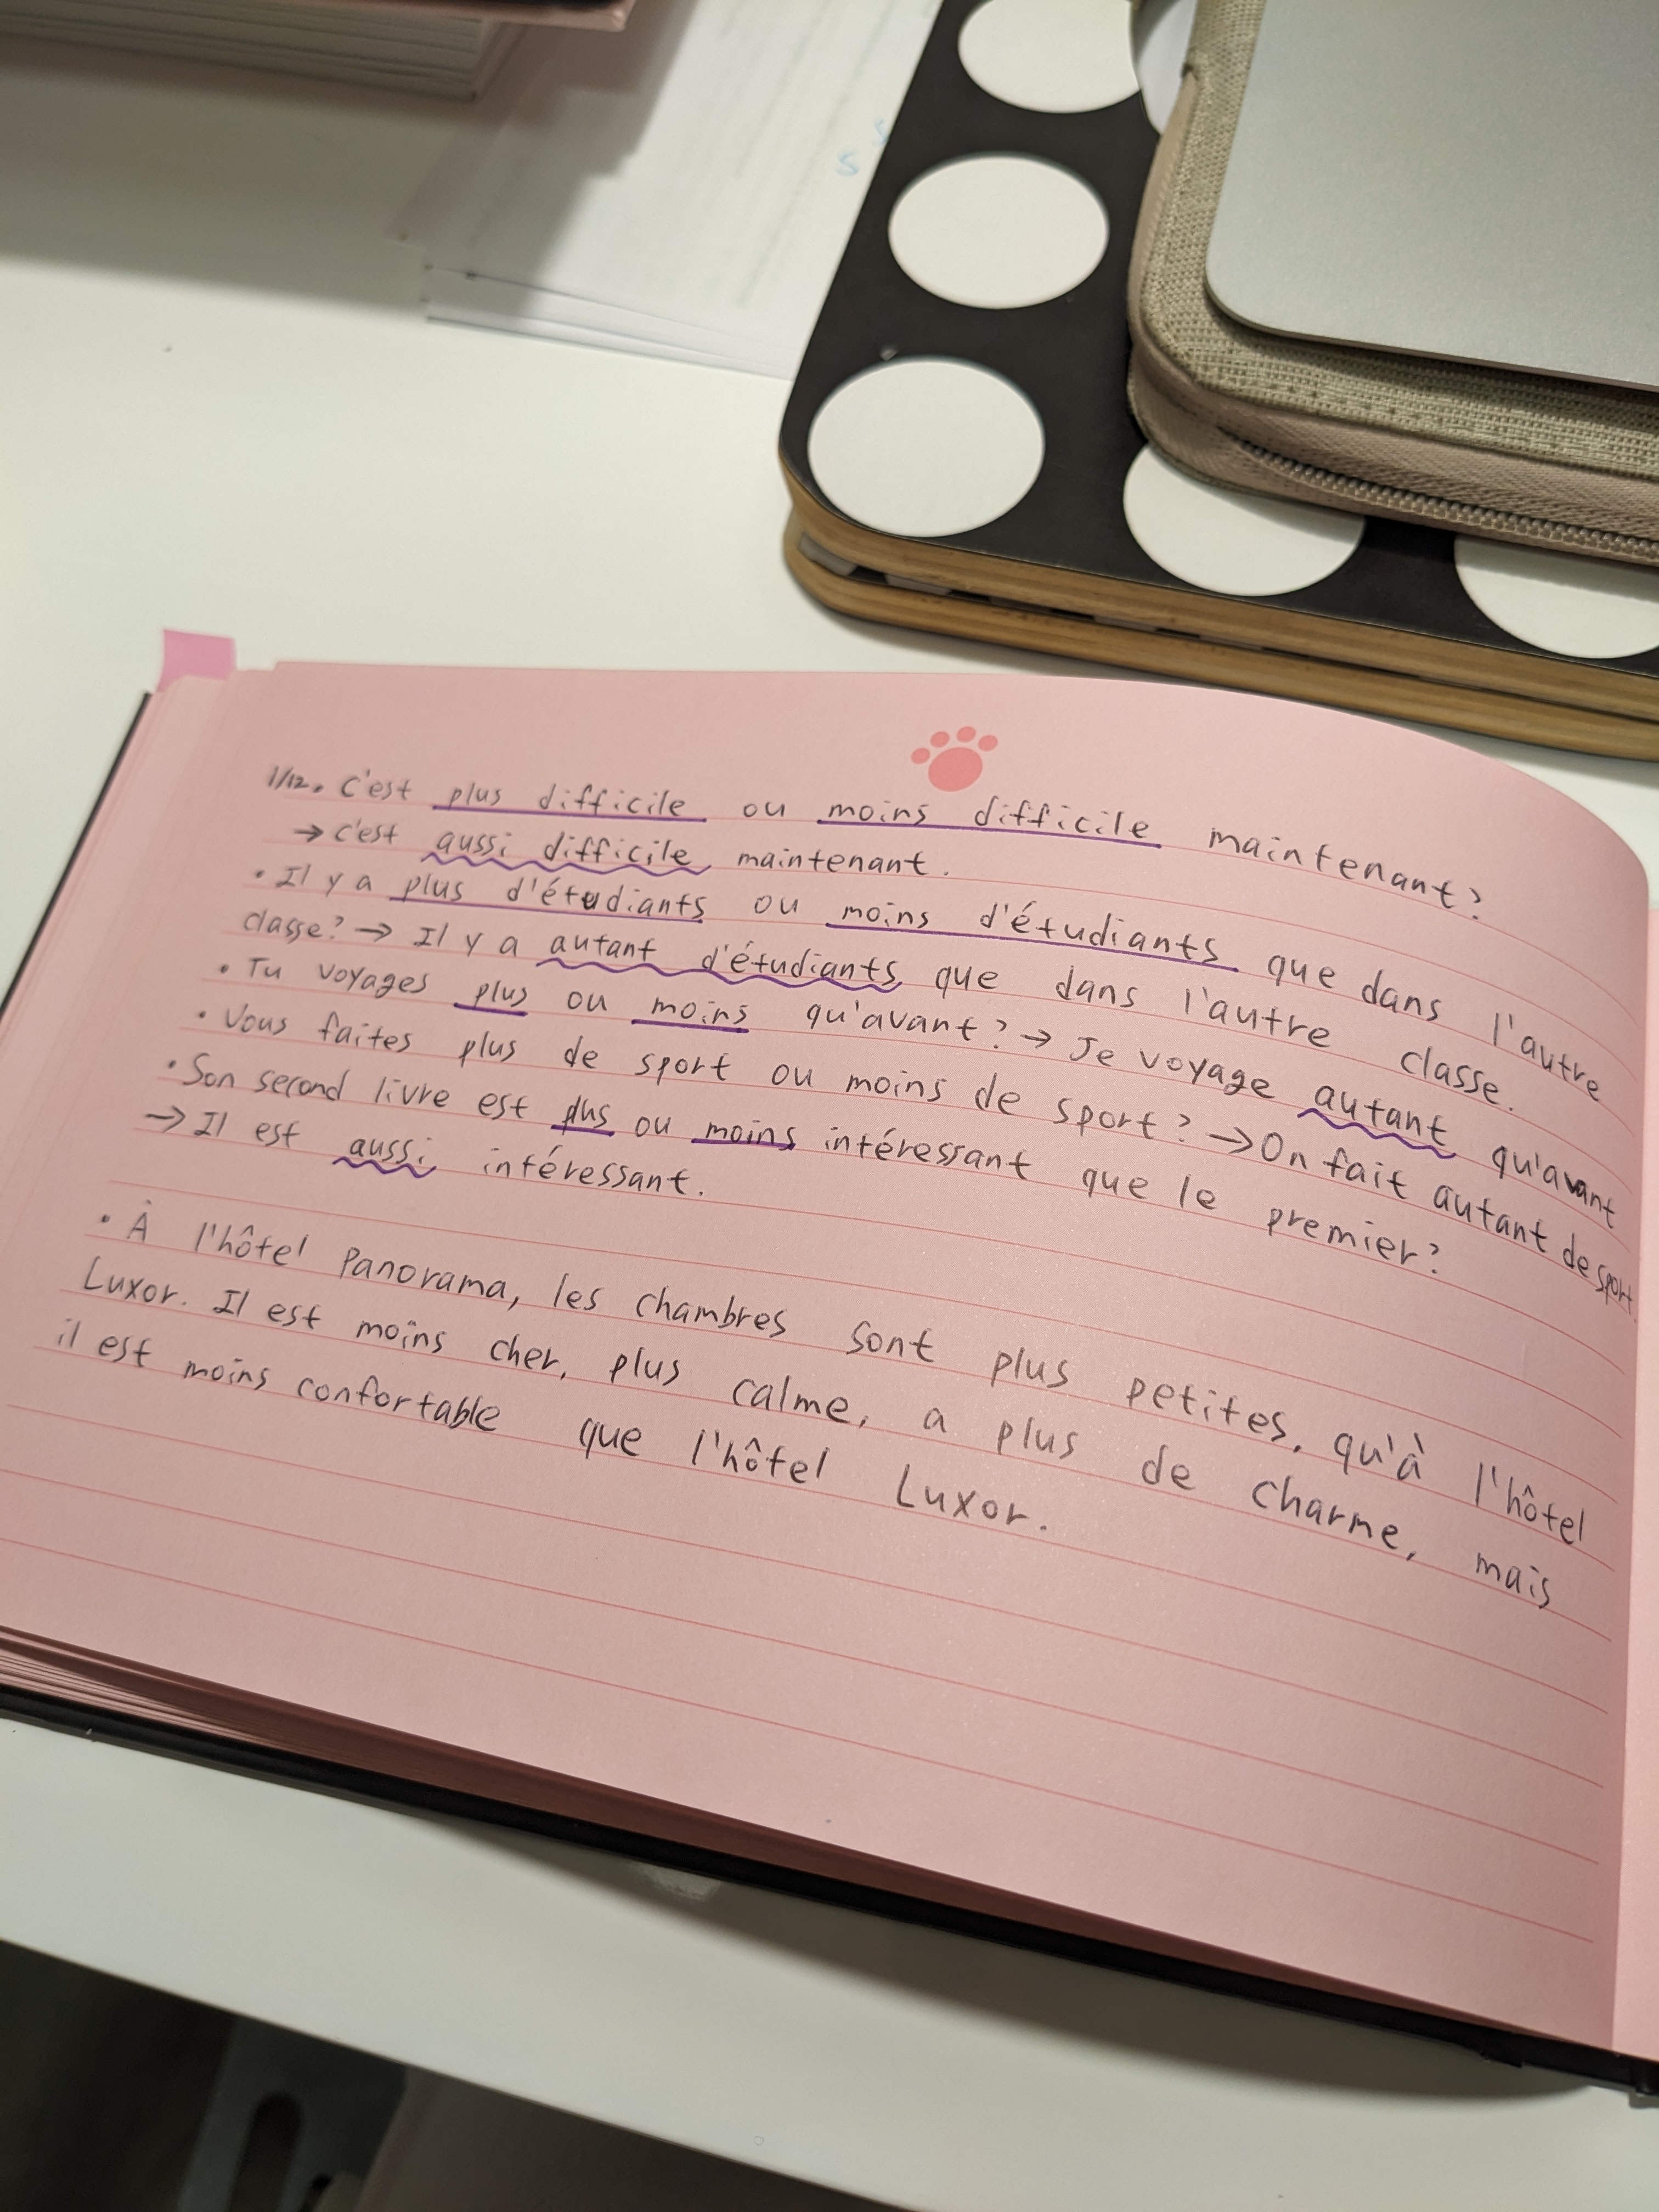 1/12. C'est plus difficile ou moins difficile maintenant?
→ C'est aussi difficile maintenant.
• Il y a plus d'étudiants ou moins d'étudiants que dans l'autre
classe? → Il y a autant d'étudiants que dans l'autre classe.
• Tu voyages plus ou moins qu'avant? → Je voyage autant qu'avant
• Vous faites plus de sport ou moins de sport? → On fait autant de sport.
• Son second livre est plus ou moins intéressant que le premier?
→ Il est aussi intéressant.
• À l'hôtel Panorama, les chambres sont plus petites, qu'à l'hôtel
Luxor. Il est moins cher, plus calme, a plus de charme, mais
il est moins confortable que l'hôtel Luxor.